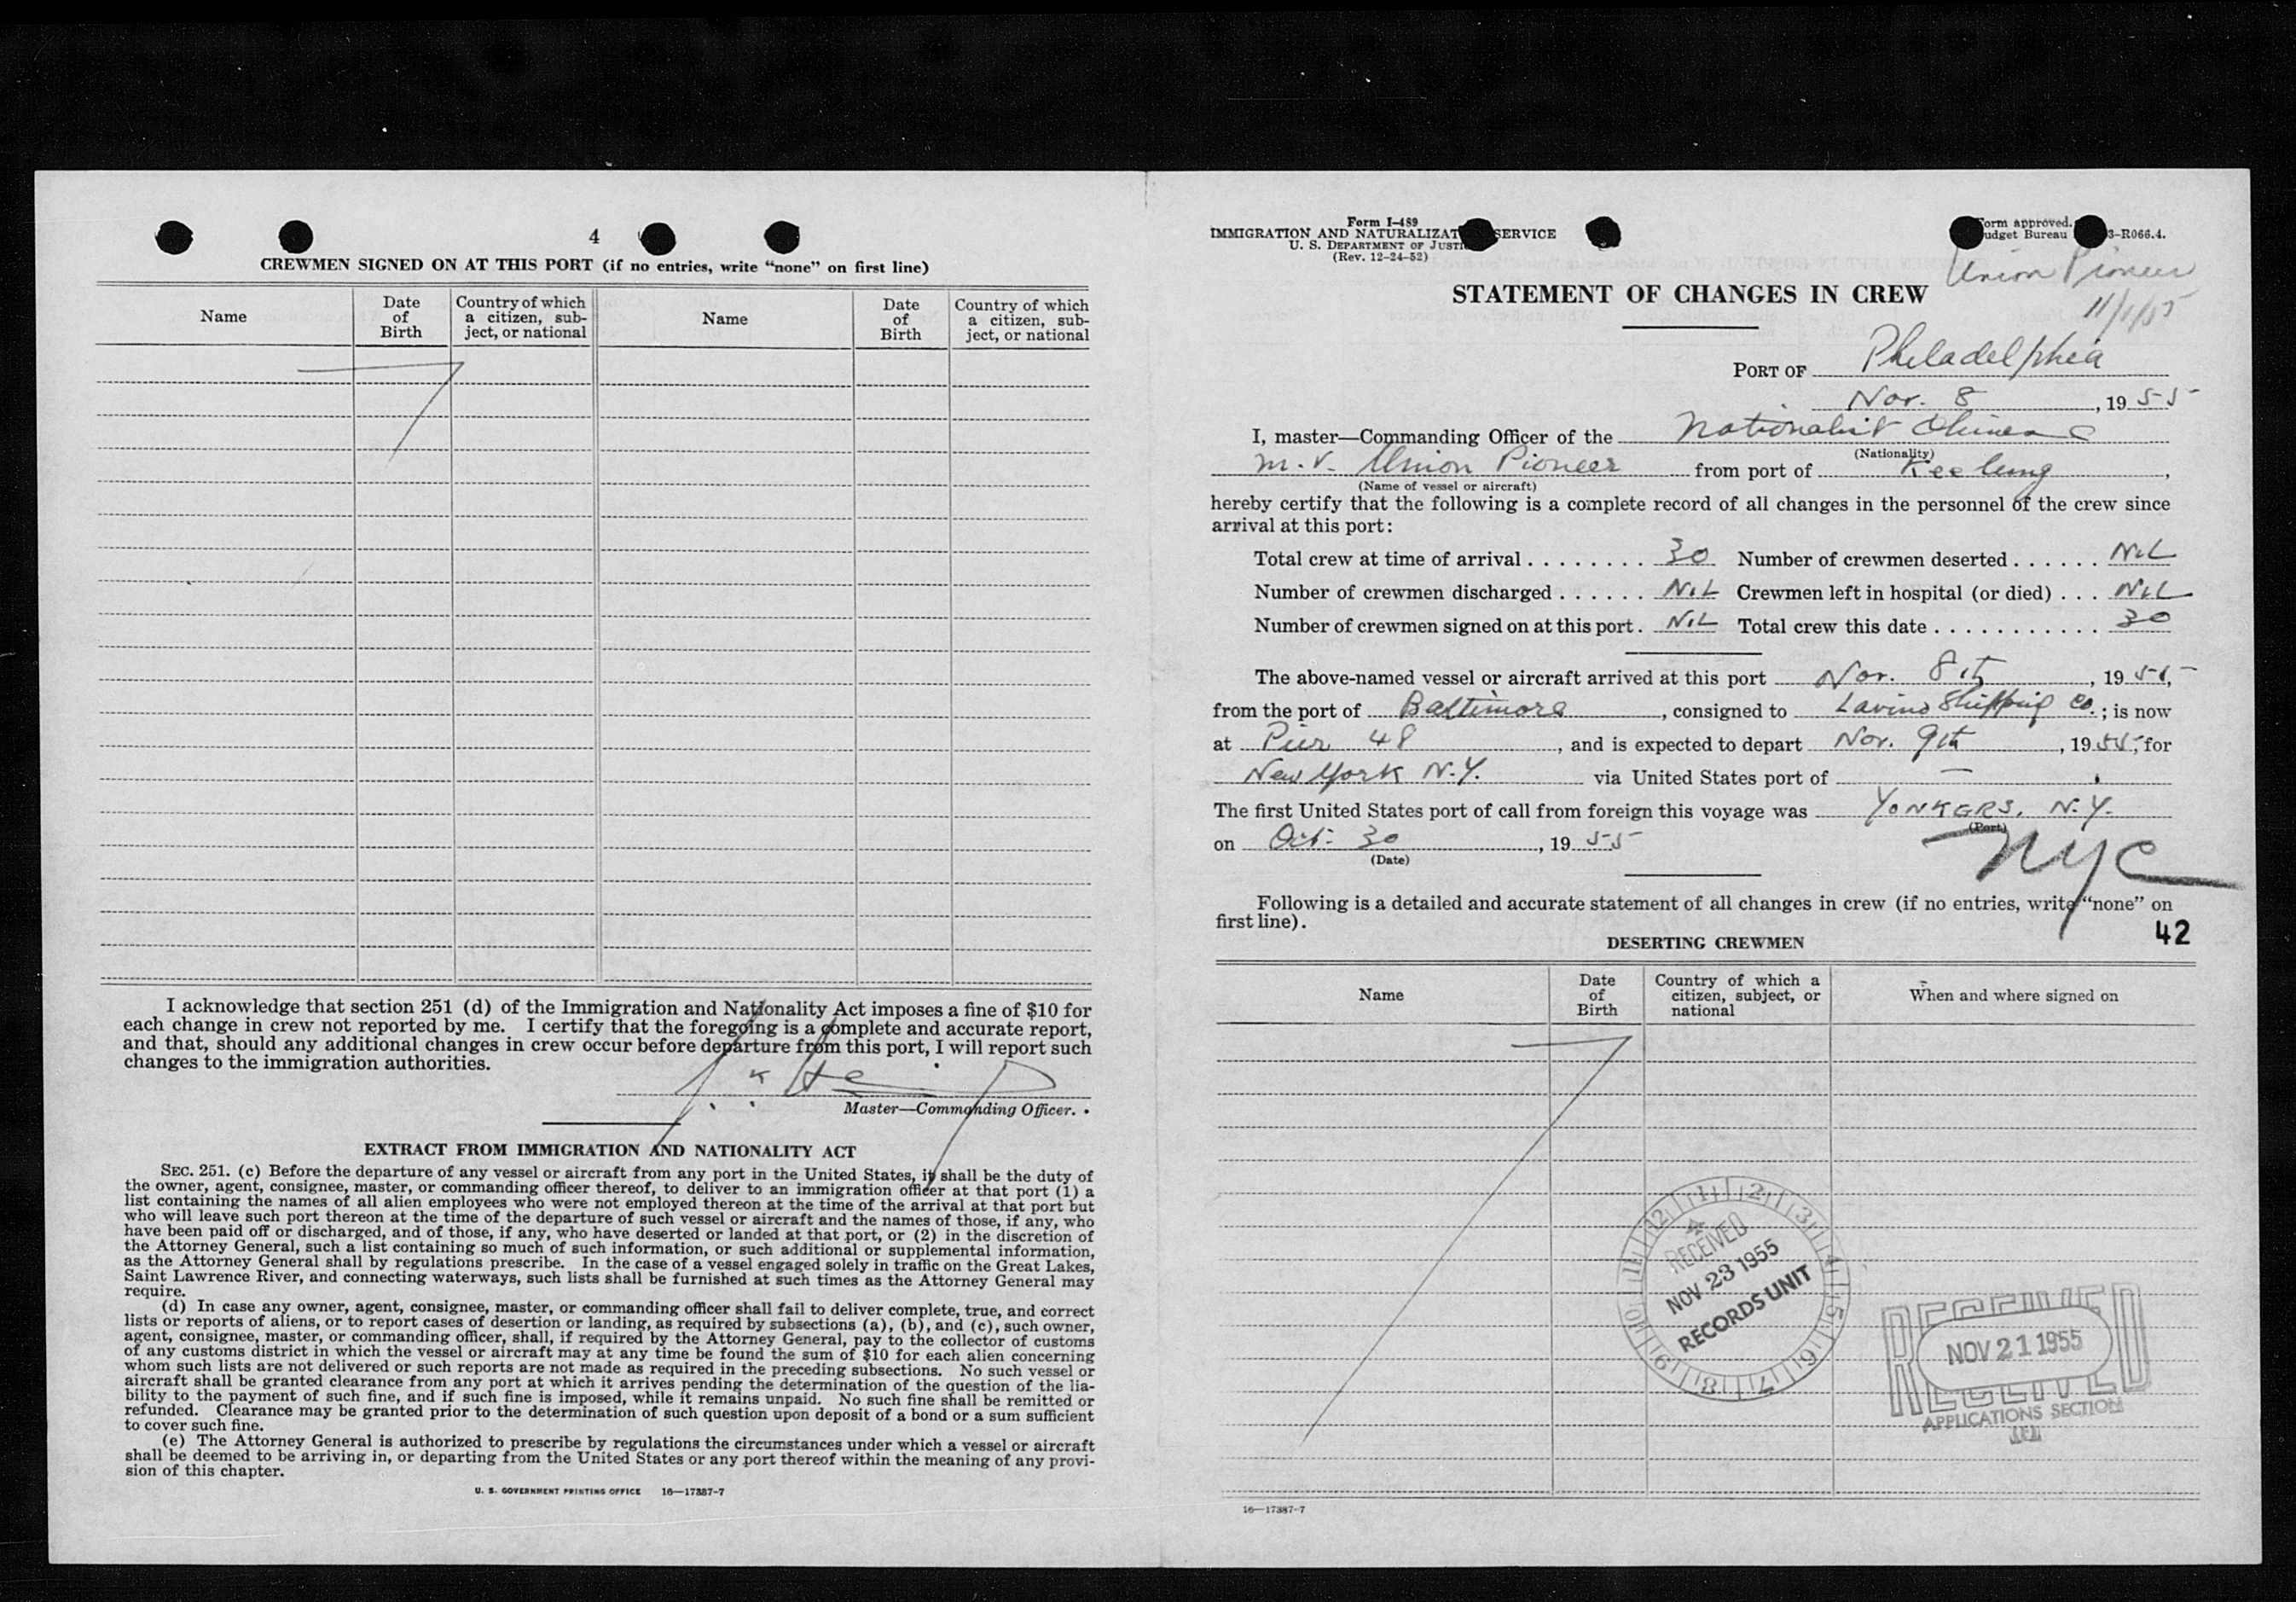 4
CREWMEN SIGNED ON AT THIS PORT (if no entries, write “none” on first line)
Name
Date of Birth
Country of which a citizen, sub-ject, or national
Name
Date of Birth
Country of which a citizen, sub-ject, or national
I acknowledge that section 251 (d) of the Immigration and Nationality Act imposes a fine of $10 for
each change in crew not reported by me. I certify that the foregoing is a complete and accurate report,
and that, should any additional changes in crew occur before departure from this port, I will report such
changes to the immigration authorities.
Master—Commanding Officer.
EXTRACT FROM IMMIGRATION AND NATIONALITY ACT
SEC. 251. (c) Before the departure of any vessel or aircraft from any port in the United States, it shall be the duty of
the owner, agent, consignee, master, or commanding officer thereof, to deliver to an immigration officer at that port (1) a
list containing the names of all alien employees who were not employed thereon at the time of the arrival at that port but
who will leave such port thereon at the time of the departure of such vessel or aircraft and the names of those, if any, who
have been paid off or discharged, and of those, if any, who have deserted or landed at that port, or (2) in the discretion of
the Attorney General, such a list containing so much of such information, or such additional or supplemental information,
as the Attorney General shall by regulations prescribe. In the case of a vessel engaged solely in traffic on the Great Lakes,
Saint Lawrence River, and connecting waterways, such lists shall be furnished at such times as the Attorney General may
require.
(d) In case any owner, agent, consignee, master, or commanding officer shall fail to deliver complete, true, and correct
lists or reports of aliens, or to report cases of desertion or landing, as required by subsections (a), (b), and (c), such owner,
agent, consignee, master, or commanding officer, shall, if required by the Attorney General, pay to the collector of customs
of any customs district in which the vessel or aircraft may at any time be found the sum of $10 for each alien concerning
whom such lists are not delivered or such reports are not made as required in the preceding subsections. No such vessel or
aircraft shall be granted clearance from any port at which it arrives pending the determination of the question of the lia-
bility to the payment of such fine, and if such fine is imposed, while it remains unpaid. No such fine shall be remitted or
refunded. Clearance may be granted prior to the determination of such question upon deposit of a bond or a sum sufficient
to cover such fine.
(e) The Attorney General is authorized to prescribe by regulations the circumstances under which a vessel or aircraft
shall be deemed to be arriving in, or departing from the United States or any port thereof within the meaning of any provi-
sion of this chapter.
U. S. GOVERNMENT PRINTING OFFICE 16—17387-7
Form I-489
IMMIGRATION AND NATURALIZAT SERVICE
U. S. DEPARTMENT OF JUSTI
(Rev. 12-24-52)
orm approved.
udget Bureau 3-R066.4.
Union Pioneer
11/1/55
STATEMENT OF CHANGES IN CREW
PORT OF Philadelphia
Nov. 8, 1955
I, master—Commanding Officer of the Nationalist Chinese
(Nationality)
M.V. Union Pioneer from port of Keelung,
(Name of vessel or aircraft)
hereby certify that the following is a complete record of all changes in the personnel of the crew since
arrival at this port:
Total crew at time of arrival . . . . . . . . 30 Number of crewmen deserted . . . . . . NiL
Number of crewmen discharged . . . . . . NiL Crewmen left in hospital (or died) . . . NiL
Number of crewmen signed on at this port . NiL Total crew this date . . . . . . . . . . . 30
The above-named vessel or aircraft arrived at this port Nov. 8th, 1955,
from the port of Baltimore, consigned to Lavino Shipping Co.; is now
at Pier 48, and is expected to depart Nov. 9th, 1955, for
New York N.Y. via United States port of —.
The first United States port of call from foreign this voyage was YONKERS, N.Y.
(Port)
on Oct. 30, 1955
(Date)
NYC
Following is a detailed and accurate statement of all changes in crew (if no entries, write “none” on
first line).
42
DESERTING CREWMEN
Name
Date of Birth
Country of which a citizen, subject, or national
When and where signed on
12 1 2 3 4 5 6 7 8 9 10 11
RECEIVED
NOV 23 1955
RECORDS UNIT
RECEIVED
NOV 21 1955
RECEIVED
APPLICATIONS SECTION
16—17387-7